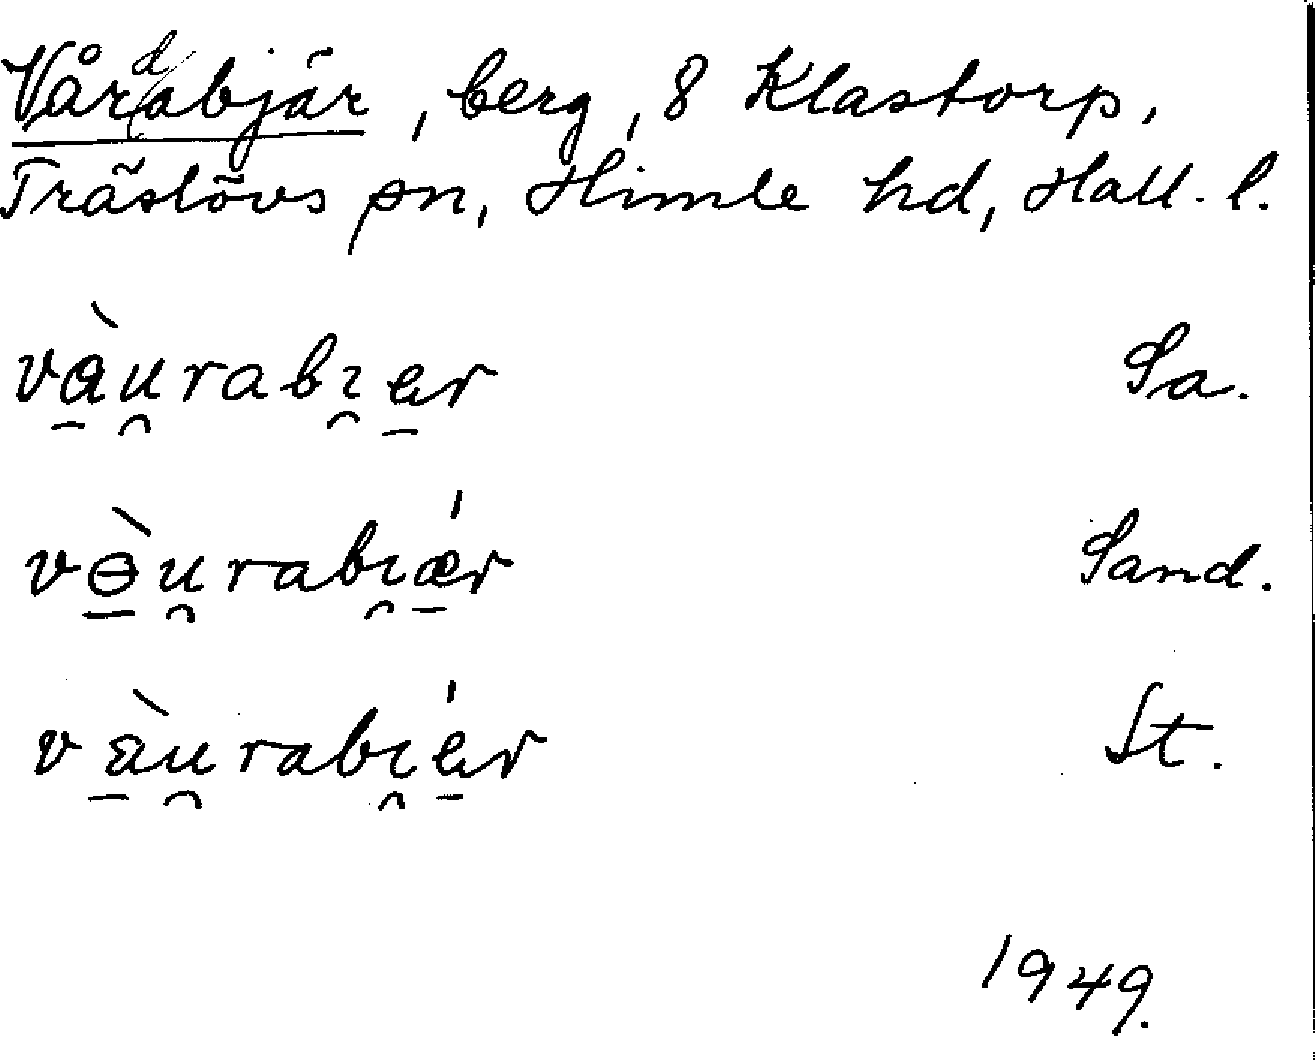 Vårdabjär, berg, 8 Klastorp,
Träslövs sn, Himle hd, Hall. l.
và̱u̯rabı̯e̱r Sa.
vɵ̱̀u̯rabı̯ǽ̱r Sand.
và̱u̯rabı̯é̱r St.
1949.